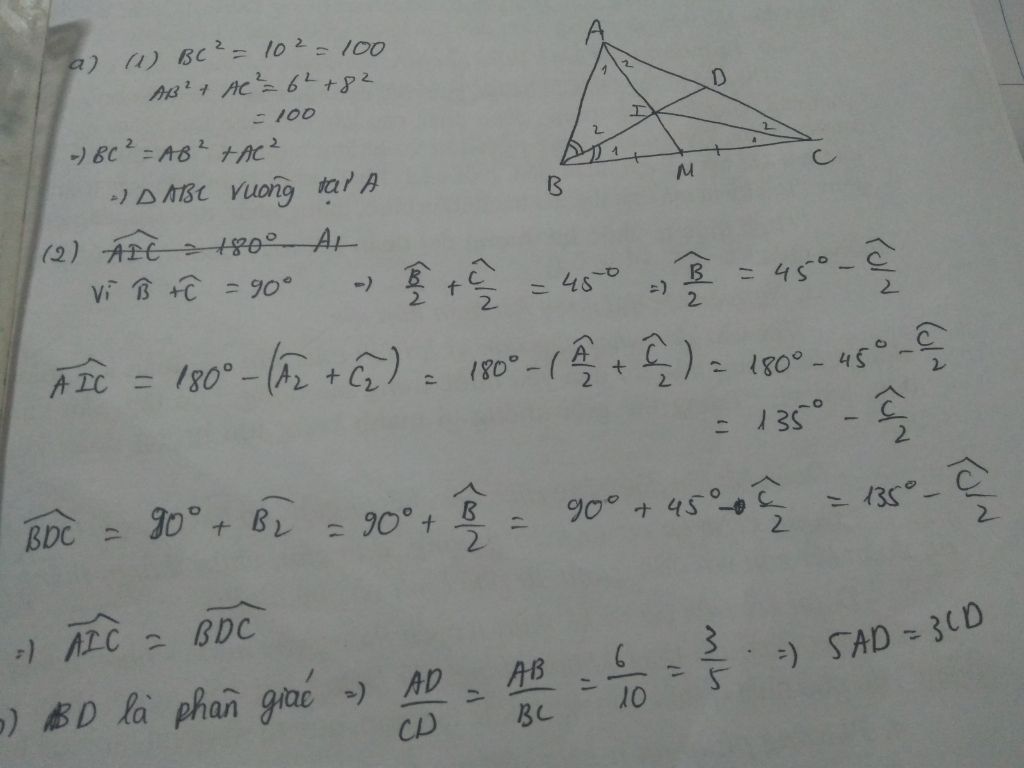 a) (1) BC² = 10² = 100
AB² + AC² = 6² + 8²
= 100
=) BC² = AB² + AC²
=) Δ ABC vuông tại A
A
1 2
D
I
2
1
2
1
B
M
C
(2) AIC = 180° - A₁
Vì B̂ + Ĉ = 90° =) B̂/2 + Ĉ/2 = 45° =) B̂/2 = 45° - Ĉ/2
AIC = 180° - (Â₂ + Ĉ₂) = 180° - (Â/2 + Ĉ/2) = 180° - 45° - Ĉ/2
= 135° - Ĉ/2
BDC = 90° + B̂₂ = 90° + B̂/2 = 90° + 45° - Ĉ/2 = 135° - Ĉ/2
=) AIC = BDC
b) BD là phân giác =) AD/CD = AB/BC = 6/10 = 3/5 . =) 5AD = 3CD